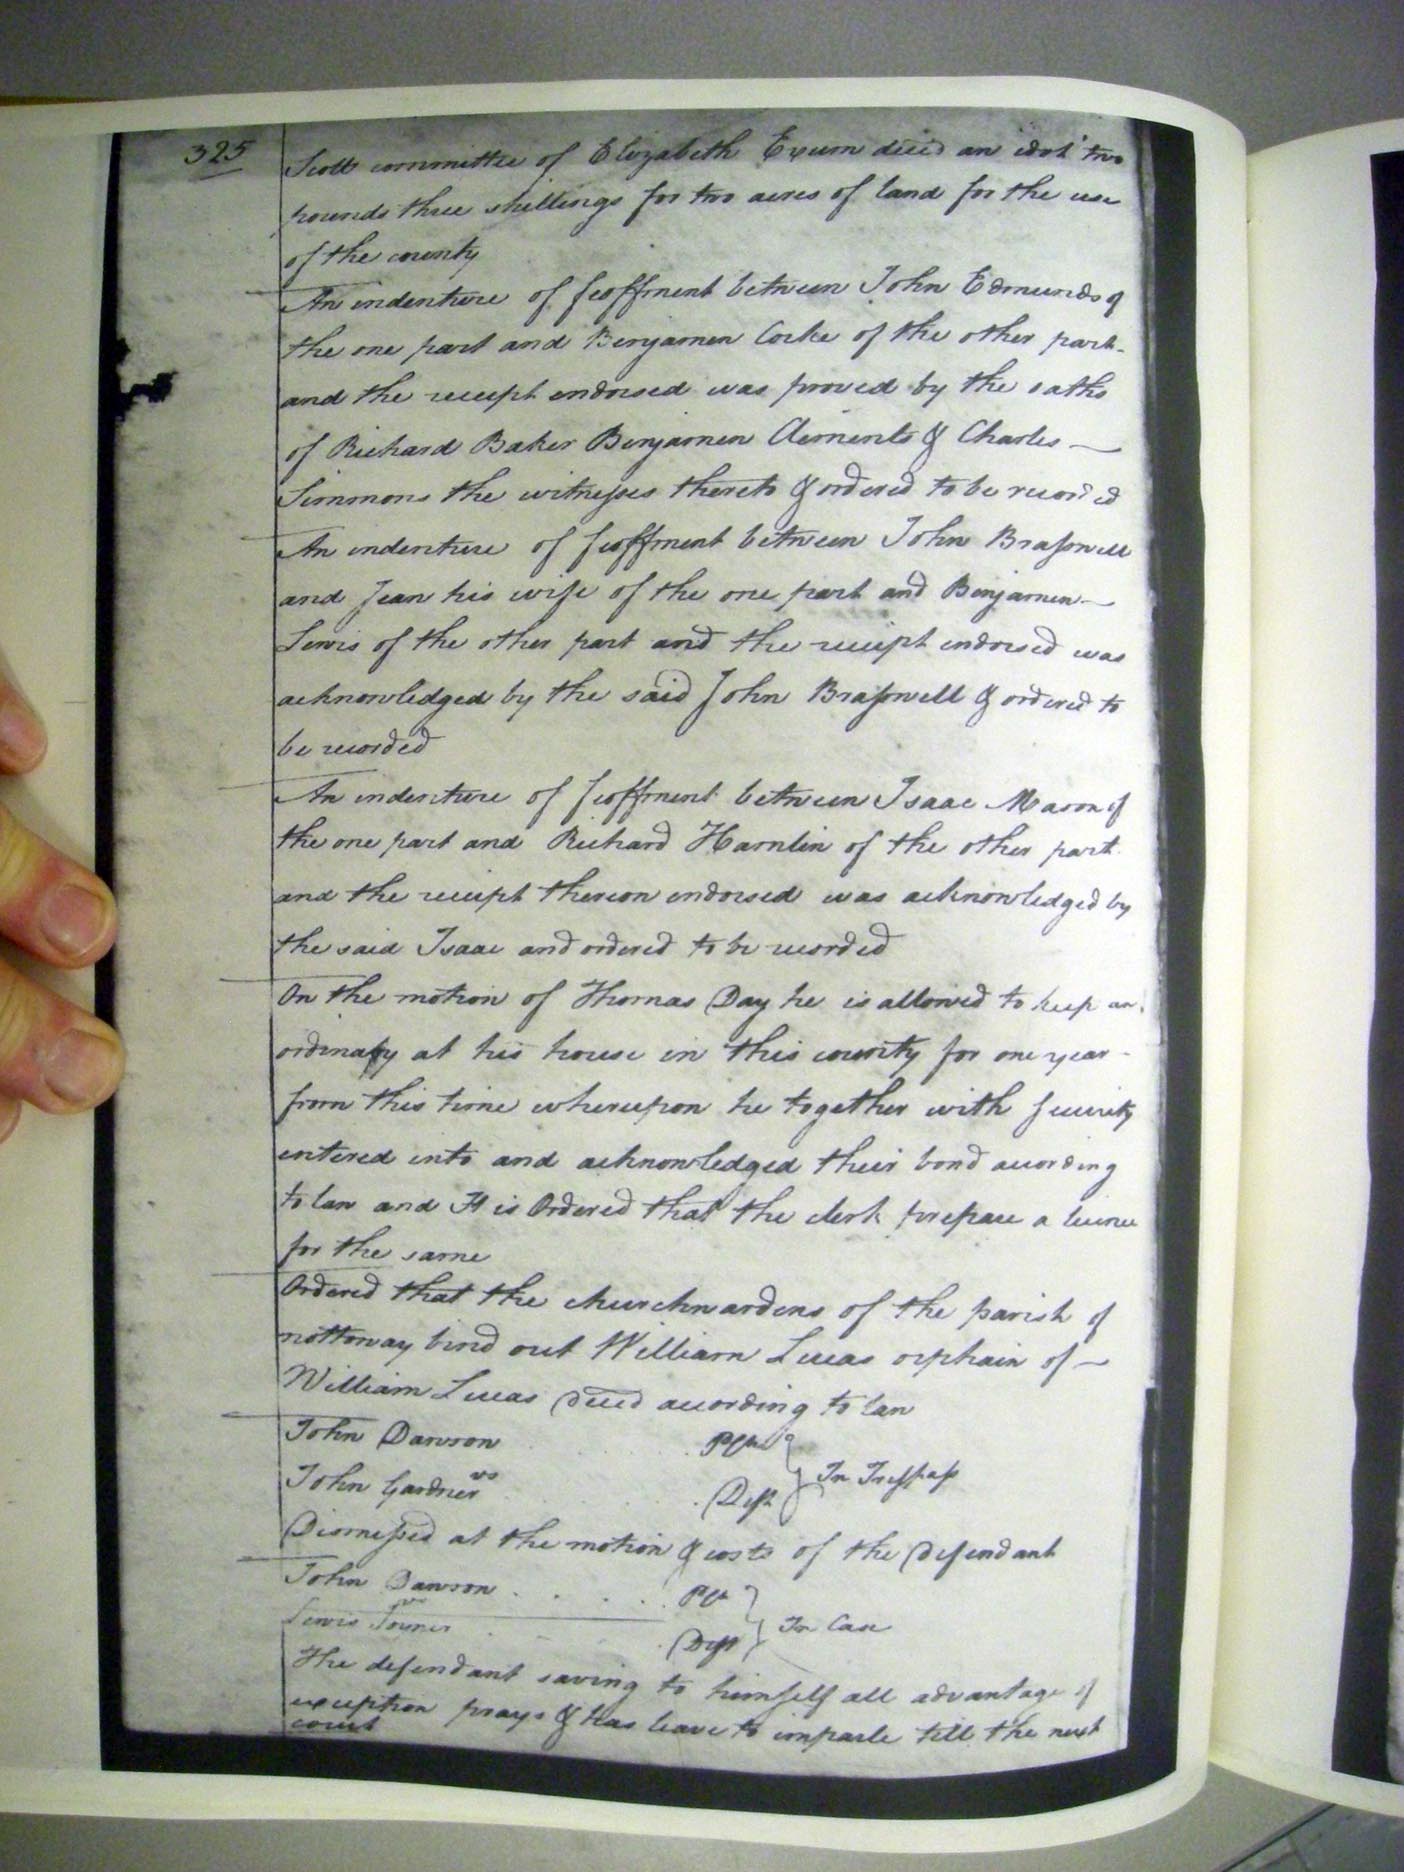 325
Scott committee of Elizabeth Exum decd an idot two
pounds three shillings for two acres of land for the use
of the county
An indenture of feoffment between John Edmunds of
the one part and Benjamen Cocke of the other part
and the receipt endorsed was proved by the oaths
of Richard Baker Benjamen Clements & Charles
Simmons the witnesses thereto & ordered to be recorded
An indenture of feoffment between John Brasswell
and Jean his wife of the one part and Benjamen
Lewis of the other part and the receipt endorsed was
acknowledged by the said John Brasswell & ordered to
be recorded
An indenture of feoffment between Isaac Mason of
the one part and Richard Hamlin of the other part
and the receipt thereon endorsed was acknowledged by
the said Isaac and ordered to be recorded
On the motion of Thomas Day he is allowed to keep an
ordinary at his house in this county for one year
from this time whereupon he together with security
entered into and acknowledged their bond according
to law and It is Ordered that the clerk prepare a licence
for the same
Ordered that the churchwardens of the parish of
nottoway bind out William Lucas orphain of
William Lucas decd according to law
John Dawson . . . Plt
vs } In Trespass
John Gardner . . . Deft
Dismissed at the motion & costs of the Defendant
John Dawson . . . . . Plt
vs } In Case
Lewis . . . Deft
The defendant saving to himself all advantage of
exception prays & has leave to imparle till the next
court